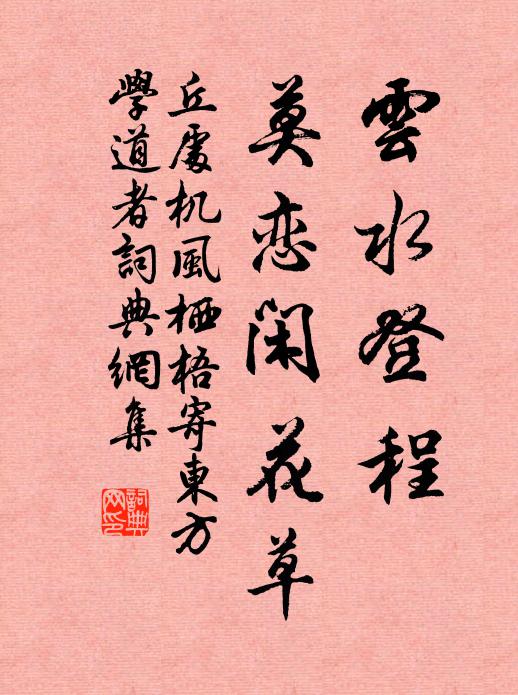 雲水登程
莫恋閑花草
丘處机風栖梧寄東方
學道者詞典網集
詞典网印